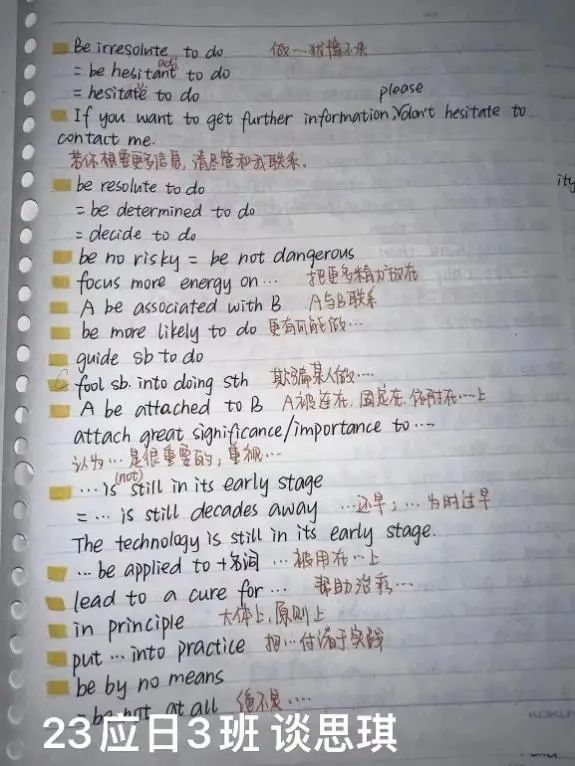 Be irresolute to do 做…犹豫不决
adj
= be hesitant to do
= hesitate to do
please
If you want to get further information, don't hesitate to
contact me.
若你想要更多信息,请尽管和我联系.
be resolute to do
= be determined to do
= decide to do
ity
be no risky = be not dangerous
focus more energy on… 把更多精力放在
A be associated with B A与B联系
be more likely to do 更有可能做…
guide sb to do
fool sb. into doing sth 欺骗某人做…
A be attached to B A被连在,固定在,依附在…上
attach great significance/importance to …
认为…是很重要的,重视…
(not)
…is still in its early stage
= … is still decades away …还早;…为时过早
The technology is still in its early stage.
… be applied to +名词 …被用在…上
lead to a cure for … 帮助治疗…
in principle 大体上,原则上
put … into practice 把…付诸于实践
be by no means
= be not at all 绝不是….
23应日3班 谈思琪